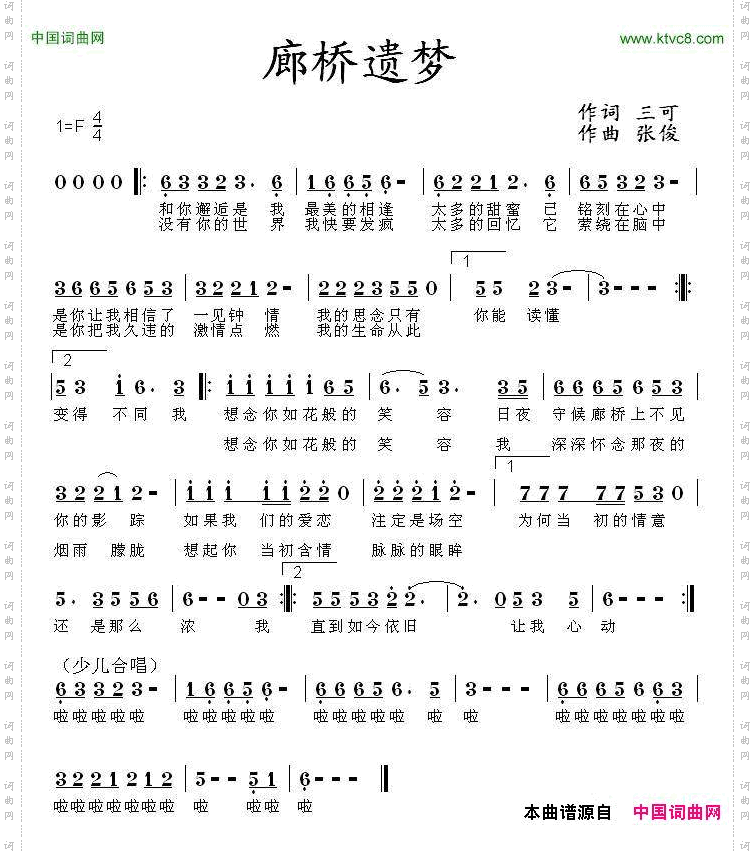 中国词曲网
www.ktvc8.com
廊桥遗梦
作词 三可
1=F 4/4
作曲 张俊
0 0 0 0 6 3 3 2 3. 6 1 6 6 5 6 - 6 2 2 1 2. 6 6 5 3 2 3 -
和你邂逅是 我 最美的相逢 太多的甜蜜 己 铭刻在心中
没有你的世 界 我快要发疯 太多的回忆 它 萦绕在脑中
1
3 6 6 5 6 5 3 3 2 2 1 2 - 2 2 2 3 5 5 0 5 5 2 3 3 - - -
是你让我相信了 一见钟 情 我的思念只有 你能 读懂
是你把我久违的 激情点 燃 我的生命从此
2
5 3 1 6. 3 1 1 1 1 1 6 5 6. 5 3. 3 5 6 6 6 5 6 5 3
变得 不同 我 想念你如花般的 笑 容 日夜 守候廊桥上不见
想念你如花般的 笑 容 我 深深怀念那夜的
1
3 2 2 1 2 - 1 1 1 1 1 2 2 0 2 2 2 1 2 - 7 7 7 7 7 5 3 0
你的影 踪 如果我 们的爱恋 注定是场空 为何当 初的情意
烟雨 朦胧 想起你 当初含情 脉脉的眼眸
2
5. 3 5 5 6 6 - - 0 3 5 5 5 3 2 2. 2. 0 5 3 5 6 -
还 是那么 浓 我 直到如今依旧 让我 心 动
（少儿合唱）
6 3 3 2 3 - 1 6 6 5 6 - 6 6 6 5 6. 3 3 - - - 6 6 6 5 6 6 3
啦啦啦啦啦 啦啦啦啦啦 啦啦啦啦啦 啦 啦 啦啦啦啦啦啦啦
3 2 2 1 2 1 2 5 - - 5 1 6 - - -
啦啦啦啦啦啦啦 啦 啦啦 啦
本曲谱源自 中国词曲网
词曲网